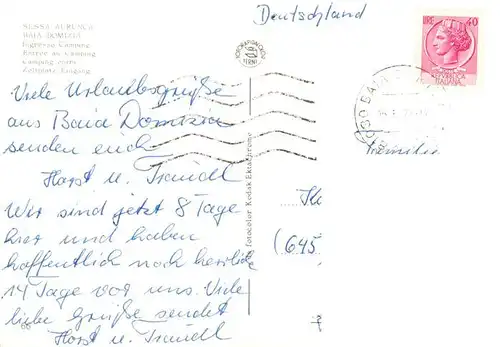 SESSA AURUNCA
BAIA DOMIZIA
Ingresso Camping
Entrée au Camping
Camping entry
Zeltplatz Eingang
Deutschland
LIRE 40
REPUBBLICA
ITALIANA
BAIA
Viele Urlaubsgrüße
aus Baia Domizia
senden euch
Horst u. Traudl
Wir sind jetzt 8 Tage
hier und haben
hoffentlich noch herrliche
14 Tage vor uns. Viele
liebe Grüße sendet
Horst u. Traudl
Familie
(645
fotocolor Kodak Ektachrome